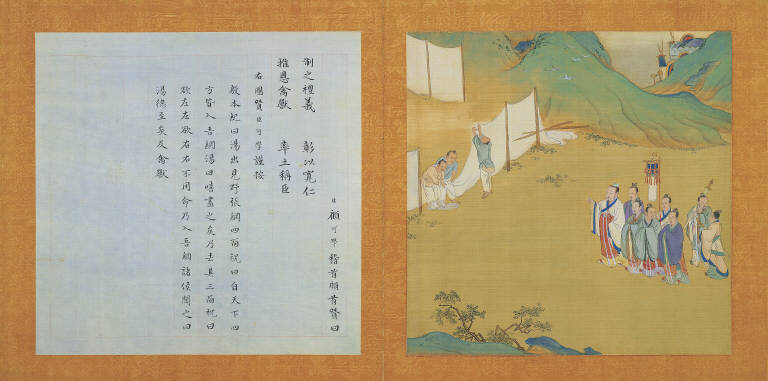 臣顧可學稽首頓首贊曰
制之禮義 彰以寬仁
推恩禽獸 率土稱臣
右圖贊臣可學謹按
殷本紀曰湯出見野張網四面祝曰自天下四
方皆入吾網湯曰嘻盡之矣乃去其三面祝曰
欲左左欲右右不用命乃入吾網諸侯聞之曰
湯德至矣及禽獸